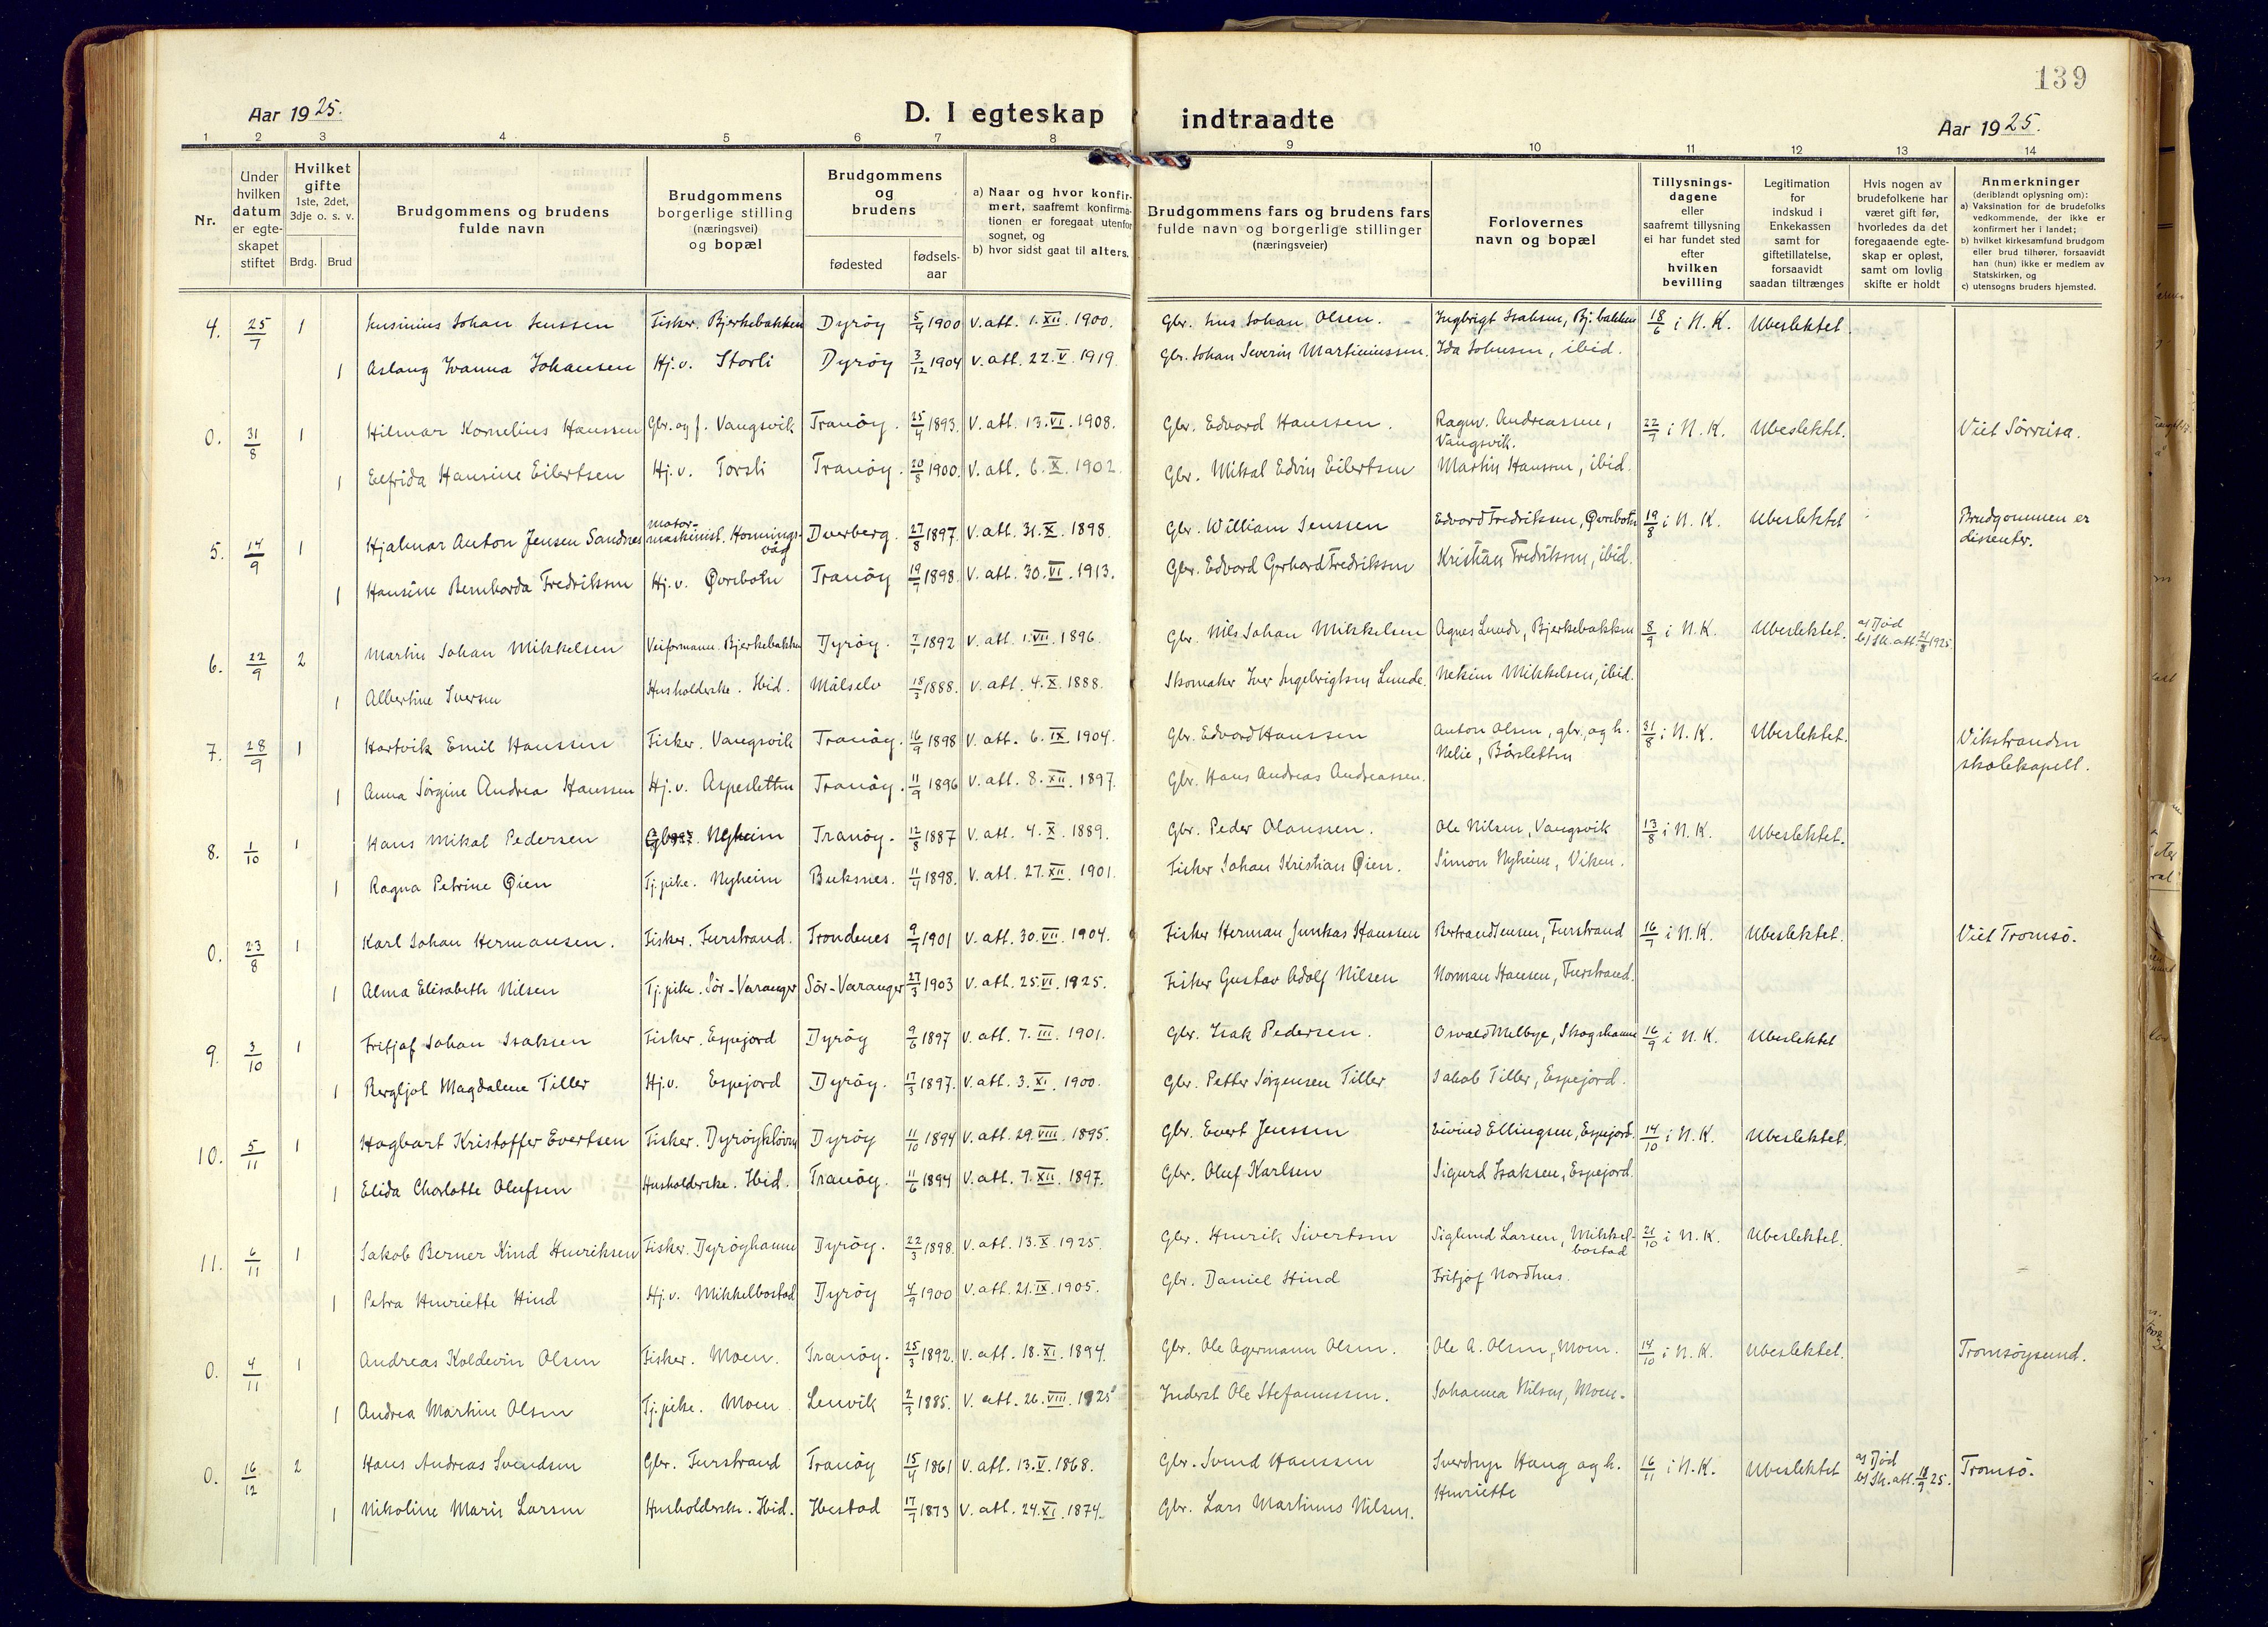 139
Aar 1925.
D. I egteskap indtraadte
Aar 1925.
1 2 3 4 5 6 7 8 9 10 11 12 13 14
Nr.
Under hvilken datum er egteskapet stiftet
Hvilket gifte 1ste, 2det, 3dje o. s. v.
Brdg. Brud
Brudgommens og brudens fulde navn
Brudgommens borgerlige stilling (næringsvei) og bopæl
Brudgommens og brudens
fødested
fødsels-aar
a) Naar og hvor konfirmert, saafremt konfirmationen er foregaat utenfor sognet, og
b) hvor sidst gaat til alters.
Brudgommens fars og brudens fars fulde navn og borgerlige stillinger (næringsveier)
Forlovernes navn og bopæl
Tillysningsdagene eller saafremt tillysning ei har fundet sted efter hvilken bevilling
Legitimation for indskud i Enkekassen samt for giftetillatelse, forsaavidt saadan tiltrænges
Hvis nogen av brudefolkene har været gift før, hvorledes da det foregaaende egteskap er opløst, samt om lovlig skifte er holdt
Anmerkninger (deriblandt oplysning om):
a) Vaksination for de brudefolks vedkommende, der ikke er konfirmert her i landet;
b) hvilket kirkesamfund brudgom eller brud tilhører, forsaavidt han (hun) ikke er medlem av Statskirken, og
c) utensogns bruders hjemsted.
4. 25/7 1 Johan Jenssen Fisker. Bjerkebakken Dyröy 5/4 1900 v. att. 1. XII. 1900. Gbr. Jens Johan Olsen. Ingbrigt Isaksen, Bj.bakken 18/6 i N. K. Ubeslektet.
1 Aslaug Ivanna Johansen Hj.v. Storli Dyröy 3/12 1904 v. att. 22. V. 1919. Gbr. Johan Severin Martinussen. Ida Johnsen, ibid.
0. 31/8 1 Hilmar Kornelius Hanssen Gbr. og f. Vangsvik Tranöy. 25/4 1893. V. att. 13. VI. 1908. Gbr. Edvard Hanssen. Ragnv. Andreassen, Vangsvik. 22/7 i N. K. Ubeslektet. Viet Sörreisa.
1 Elfrida Hansine Eilertsen Hj.v. Torsli Tranöy. 20/8 1900. V. att. 6. X. 1902. Gbr. Mikal Edvin Eilertsen Martin Hanssen, ibid.
5. 14/9 1 Hjalmar Anton Jensen Sandnes motor-maskinist. Honningsvåg Dverberg. 27/8 1897. V. att. 31. X. 1898. Gbr. William Jenssen Edvard Fredriksen, Øvrebotn 19/8 i N. K. Ubeslektet Brudgommen er dissenter.
1 Hansine Bernharda Fredriksen Hj.v. Øvrebotn Tranöy 19/7 1898. V. att. 30. VI. 1913. Gbr. Edvard Gerhard Fredriksen Kristian Fredriksen, ibid.
6. 22/9 2 Martin Johan Mikkelsen Veiformann. Bjerkebakken Dyröy. 7/1 1892 V. att. 1. VII. 1896. Gbr. Nils Johan Mikkelsen Agnes Lunde, Bjerkebakken 8/9 i N. K. Ubeslektet. a) Död b) Sk. att. 21/8 1925.
1 Albertine Iversen Husholderske. Ibid. Målselv 18/3 1888. V. att. 4. X. 1888. Skomaker Iver Ingebrigtsen Lunde. Mikkelsen, ibid.
7. 28/9 1 Hartvik Emil Hanssen Fisker. Vangsvik Tranöy. 16/7 1898 V. att. 6. IX. 1904. Gbr. Edvard Hanssen Anton Olsen, gbr., og h. Nelie, Bårsletten 31/8 i N. K. Ubeslektet. Vikstranden skolekapell.
1 Anna Jörgine Andrea Hanssen Hj.v. Aspesletten Tranöy. 11/9 1896 V. att. 8. XII. 1897. Gbr. Hans Andreas Andreassen.
8. 1/10 1 Hans Mikal Pedersen Gbr. Nyheim Tranöy. 12/8 1887 V. att. 4. X. 1889. Gbr. Peder Olaussen. Ole Nilsen, Vangsvik 13/8 i N. K. Ubeslektet.
1 Ragna Petrine Øien Tj.pike. Nyheim Buksnes. 11/4 1898. V. att. 27. XII. 1901. Fisker Johan Kristian Øien. Simon Nyheim, Viken.
0. 23/8 1 Karl Johan Hermansen. Fisker. Furstrand. Trondenes 9/7 1901 V. att. 30. VII. 1904. Fisker Herman Junkas Hanssen Bertrand Jensen, Furstrand 16/7 i N. K. Ubeslektet. Viet Tromsö.
1 Alma Elisabeth Nilsen Tj.pike. Sör-Varanger Sör-Varanger 27/3 1903 V. att. 25. VI. 1925. Fisker Gustav Adolf Nilsen Norman Hansen, Furstrand.
9. 3/10 1 Fritjof Johan Isaksen Fisker. Espejord Dyröy 9/6 1897 V. att. 7. III. 1901. Gbr. Isak Pedersen. Osvald Melbye, Skogshamn 16/9 i N. K. Ubeslektet
1 Bergljot Magdalene Tiller Hj.v. Espejord Dyröy. 17/3 1897. V. att. 3. XI. 1900. Gbr. Petter Jörgensen Tiller Jakob Tiller, Espejord.
10. 5/11 1 Hagbart Kristoffer Evertsen Fisker. Dyröykloven Dyröy 11/10 1894 V. att. 29. VIII. 1895. Gbr. Evert Jenssen Eivind Ellingsen, Espejord. 14/10 i N. K. Ubeslektet.
1 Elida Charlotte Olufsen Husholderske. Ibid. Tranöy. 11/6 1894 V. att. 7. XII. 1897. Gbr. Oluf Karlsen Sigurd Isaksen, Espejord.
11. 6/11 1 Jakob Berner Kind Henriksen Fisker. Dyröyhamn Dyröy. 22/3 1898. V. att. 13. X. 1925. Gbr. Henrik Sivertsen Siglund Larsen, Mikkelbostad 21/10 i N. K. Ubeslektet.
1 Petra Henriette Hind Hj.v. Mikkelbostad Dyröy 4/9 1900 V. att. 21. IX. 1905. Gbr. Daniel Hind Fritjof Nordhus.
0. 4/11 1 Andreas Koldevin Olsen Fisker. Moen. Tranöy. 25/3 1892. V. att. 18. XI. 1894. Gbr. Ole Agermann Olsen. Ole A. Olsen, Moen. 14/10 i N. K. Ubeslektet. Tromsöysund.
1 Andrea Martine Olsen Tj.pike. Moen Lenvik 2/3 1885. V. att. 26. VIII. 1925 Inderst Ole Stefanussen. Johanna Nilsen, Moen.
0. 16/12 2 Hans Andreas Svendsen Gbr. Furstrand Tranöy 15/4 1861 V. att. 13. V. 1868. Gbr. Svend Hanssen Sverdrup Haug og h. Henriette 16/11 i N. K. Ubeslektet a) Död b) Sk. att. 18/9 25. Tromsö.
1 Nikoline Marie Larsen Husholderske. Ibid. Ibestad 17/7 1873 V. att. 24. XI. 1874. Gbr. Lars Martinus Nilsen.